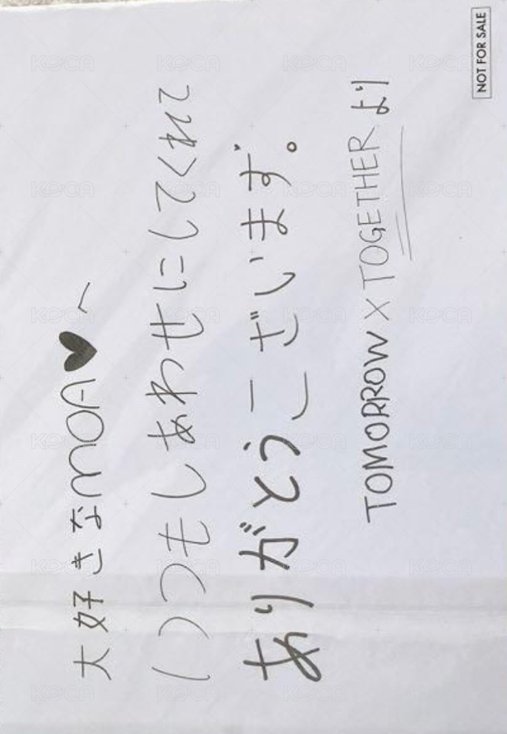 大好きなMOA♥へ
いつもしあわせにしてくれて
ありがとうございます。
TOMORROW X TOGETHER より
NOT FOR SALE